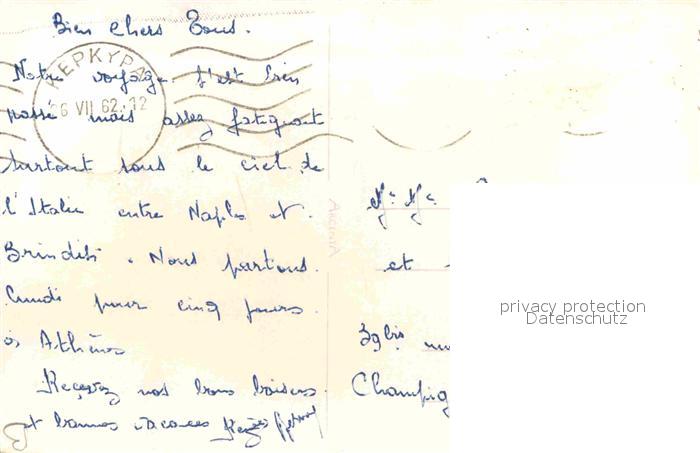 Bien Chers Tous.
ΚΕΡΚΥΡΑ
26 VII 62.12
Notre voyage s'est bien
passé mais assez fatigant
surtout sous le ciel de
l'Italie entre Naples et
Brindisi. Nous partons
lundi pour cinq jours
à Athènes
Recevez nos bons baisers
et bonnes vacances
Mr Me
et
39bis
Champig
privacy protection
Datenschutz